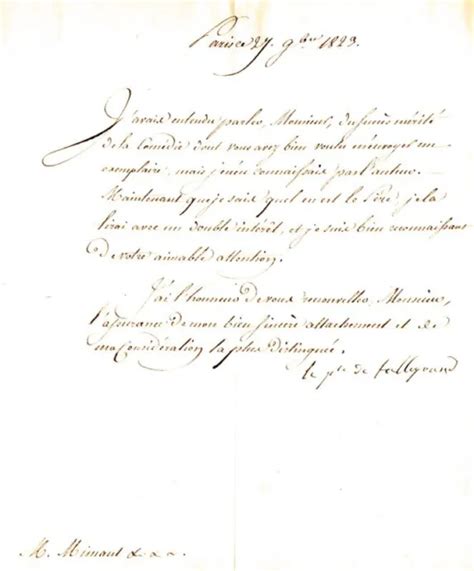 Paris ce 27. 9bre 1823.
J'avais entendu parler, Monsieur, du succès mérité
de la Comédie dont vous avez bien voulu m'envoyer un
exemplaire, mais j'en connaissais pas l'auteur.
Maintenant que je sais quel en est le Père, je la
lirai avec un double intérêt, et je suis bien reconnaissant
de votre aimable attention.
J'ai l'honneur de vous renouveller, Monsieur,
l'assurance de mon bien sincère attachement et de
ma considération la plus distinguée.
le pce de talleyrand
M. Mimaut